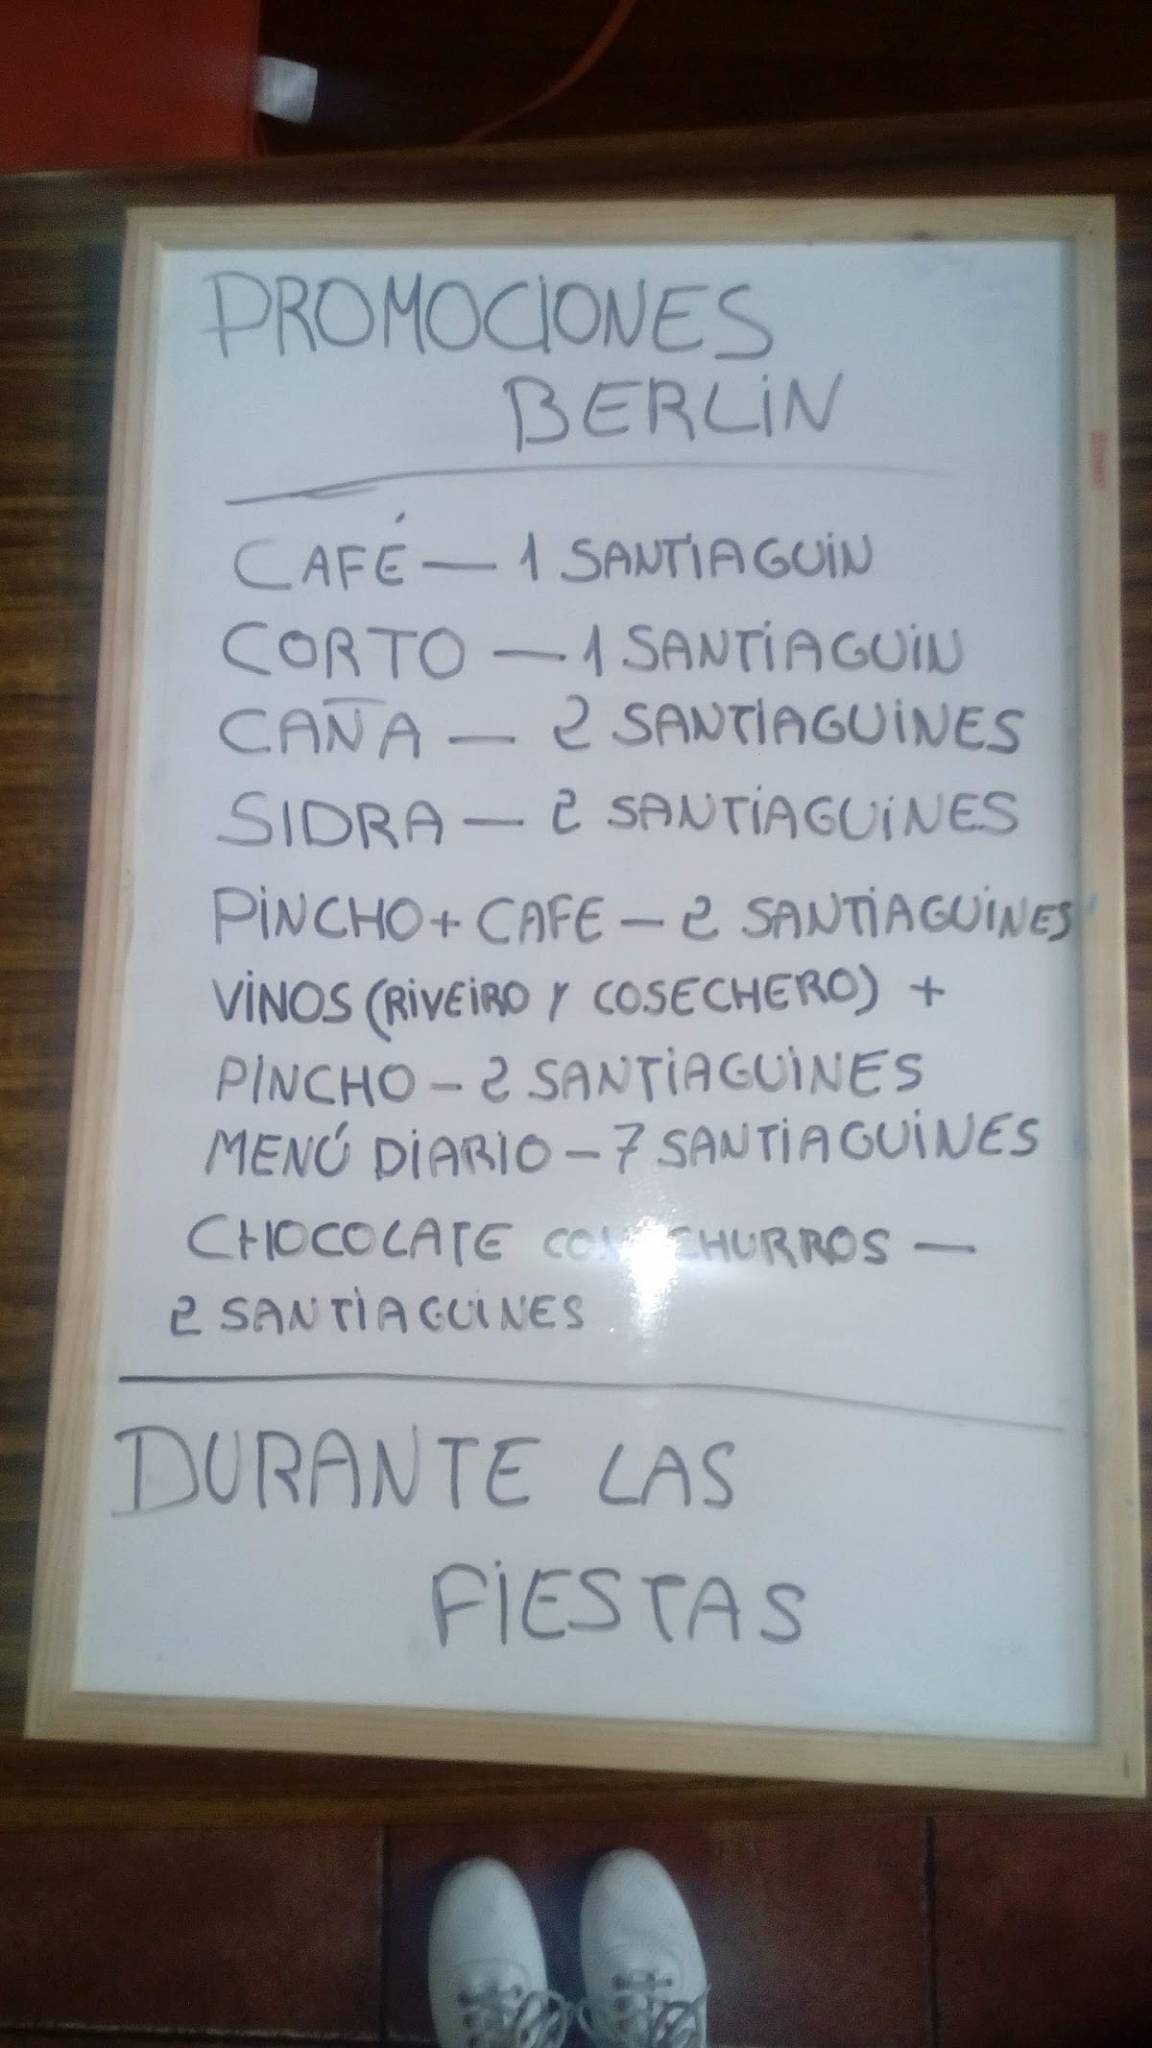 PROMOCIONES
BERLIN
CAFÉ — 1 SANTIAGUIN
CORTO — 1 SANTIAGUIN
CAÑA — 2 SANTIAGUINES
SIDRA — 2 SANTIAGUINES
PINCHO + CAFE — 2 SANTIAGUINES
VINOS (RIVEIRO Y COSECHERO) +
PINCHO — 2 SANTIAGUINES
MENÚ DIARIO — 7 SANTIAGUINES
CHOCOLATE CON CHURROS —
2 SANTIAGUINES
DURANTE LAS
FIESTAS